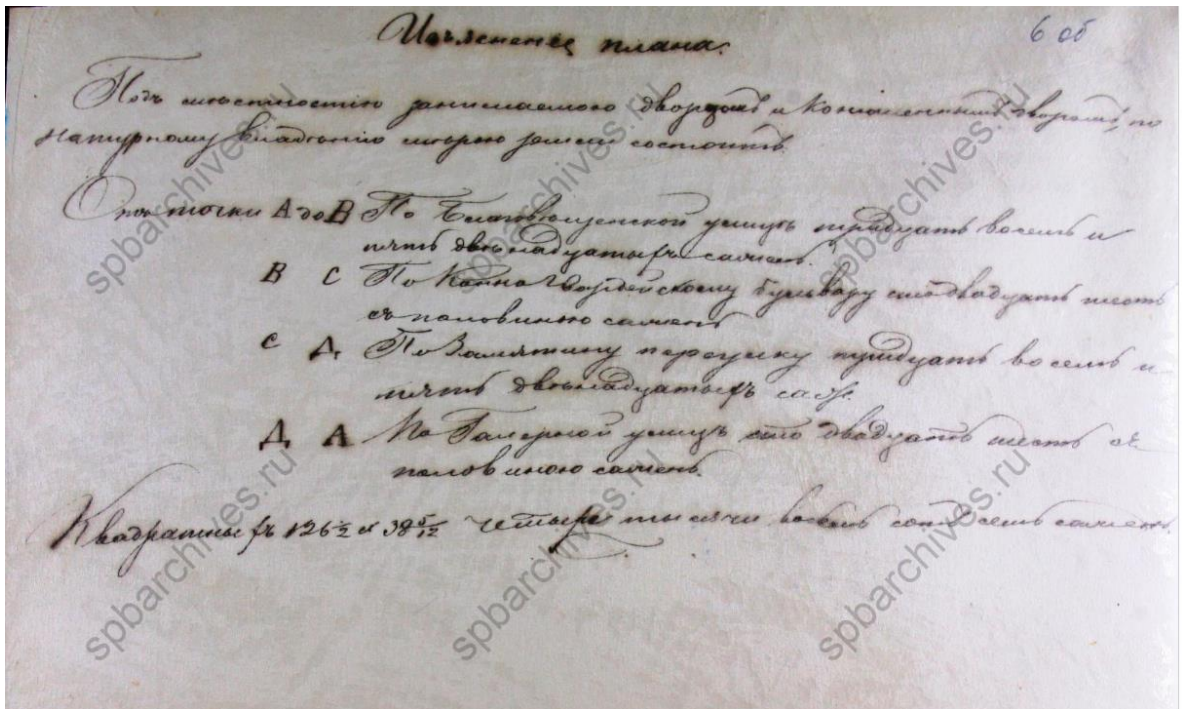 Изъясненіе плана.
6 об
Подъ мѣстностію занимаемою дворцомъ и Конюшеннымъ дворомъ, по
натурному владѣнію мѣрою земли состоитъ
Отъ точки А до В По Благовѣщенской улицѣ тридцать восемь и
пять двѣнадцатыхъ сажень.
В С По Конно Гвардейскому бульвару сто двадцать шесть
съ половиною сажень
С Д По Замятину переулку тридцать восемь и
пять двѣнадцатыхъ саж.
Д А По Галерной улицѣ сто двадцать шесть съ
половиною сажень.
Квадратныхъ 126 1/2 и 38 5/12 четыре тысячи восемь сотъ семь сажень.
spbarchives.ru
spbarchives.ru
spbarchives.ru
spbarchives.ru
spbarchives.ru
spbarchives.ru